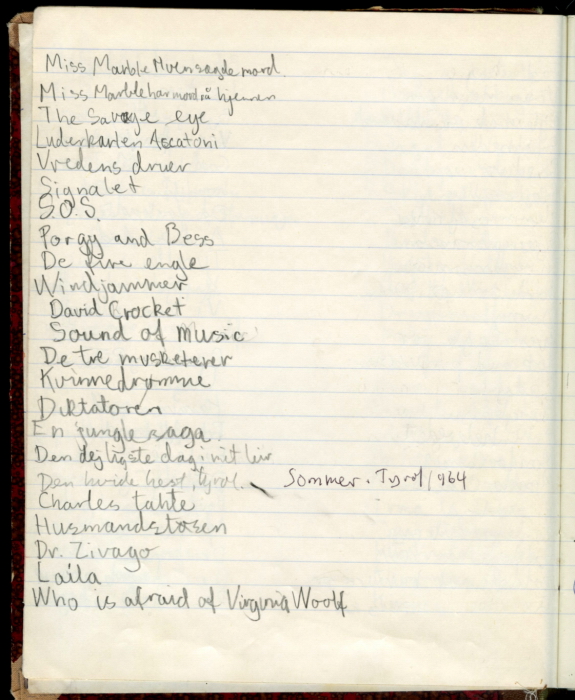 Miss Marble Hvem sagde mord
Miss Marble har mord på hjernen
The Savage eye
Luderkarlen Accatoni
Vredens druer
Signalet
S.O.S.
Porgy and Bess
De fire engle
Windjammer
David Crocket
Sound of Music
De tre musketerer
Kvinnedrømme
Diktatoren
En jungle saga.
Den dejligste dag i mit liv
Den hvide hest, Tyrol. Sommer. Tyrol 1964
Charles tante
Husmandstøsen
Dr. Zivago
Laila
Who is afraid of Virginia Woolf